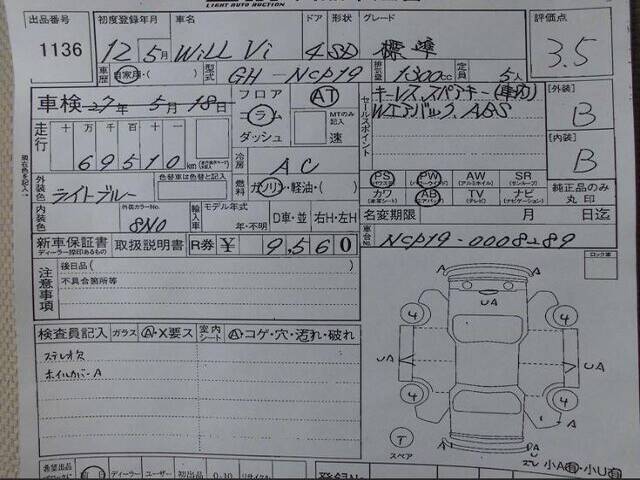 LIGHT AUTO AUCTION
出品番号 初度登録年月 車名 ドア 形状 グレード 評価点
1136 12年5月 WiLL Vi 4 SD 標準 3.5
車歴 自家用・( ) 型式 GH-NCP19 排気量 1300cc 定員 5人
車検 27年 5月 18日 フロア AT セールスポイント キーレス、スペアキー(車内) [外装]
走行 十 万 千 百 十 一 コラム MTのみ記入 Wエアバッグ、ABS B
69510 km ダッシュ 速 [内装]
冷房 AC B
外装色 ライトブルー 色替車は色替と記入 燃料 ガソリン・軽油・( ) PS PW AW SR
(パワステ) (パワーウィンド) (アルミホイル) (サンルーフ) 純正品のみ
カワ AB TV ナビ 丸印
(本革シート) (エアバッグ) (テレビ) (ナビゲーション)
内装色 外装カラーNo. 8N0 輸入車 モデル年式 年・不明 D車・並 右H・左H 名変期限 月 日迄
新車保証書 取扱説明書 R券 ¥ 9,560 車台No. NCP19-0008289
ディーラー捺印あるもの
注意事項 後日品( ) ロック車
不具合箇所等
検査員記入 ガラス A・X要ス 室内シート A・コゲ・穴・汚れ・破れ
ステレオ欠
ホイルカバーA
A A
UA
4 4
UA UA
4 4
A
T A UA
スペア 小A有・小U有
希望出品 ディーラー ユーザー 初出品 リサイクル 登録No.